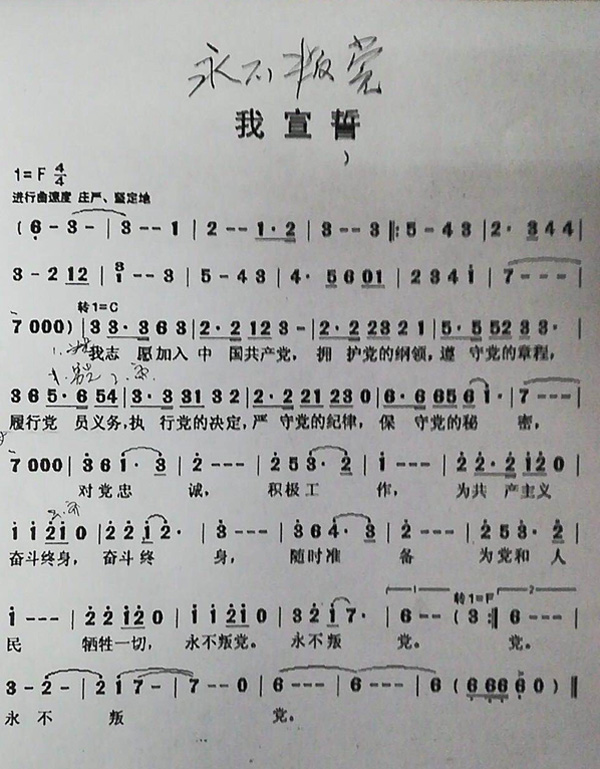 永不叛党
我宣誓
1=F 4/4
进行曲速度 庄严、坚定地
(6-3-|3--1|2--1·2|3--3‖:5-43|2·344|
3-212|3 1--3|5-43|4·5601|2341|7---|
转1=C
7000)|33·363|2·2123-|2·22321|5·55233·|
我志 愿加入中 国共产党, 拥 护党的纲领,遵 守党的章程,
365·654|3·33132|2·221230|6·66561·|7---|
履行党 员义务,执 行党的决定,严 守党的纪律, 保 守党的秘 密,
7000|361·3|2---|253·2|1---|22·2120|
对党忠 诚, 积极工 作, 为共 产主义
11210|2212·|3---|364·3|2---|253·2|
奋斗终身, 奋斗终 身, 随时准 备 为党和 人
1 2
转1=F
1---|22120|11210|3217·|6--(3:‖6---|
民 牺牲一切, 永不叛党。 永不叛 党。 党。
3-2-|217-|7--0|6---|6---|6(66660)‖
永 不 叛 党。